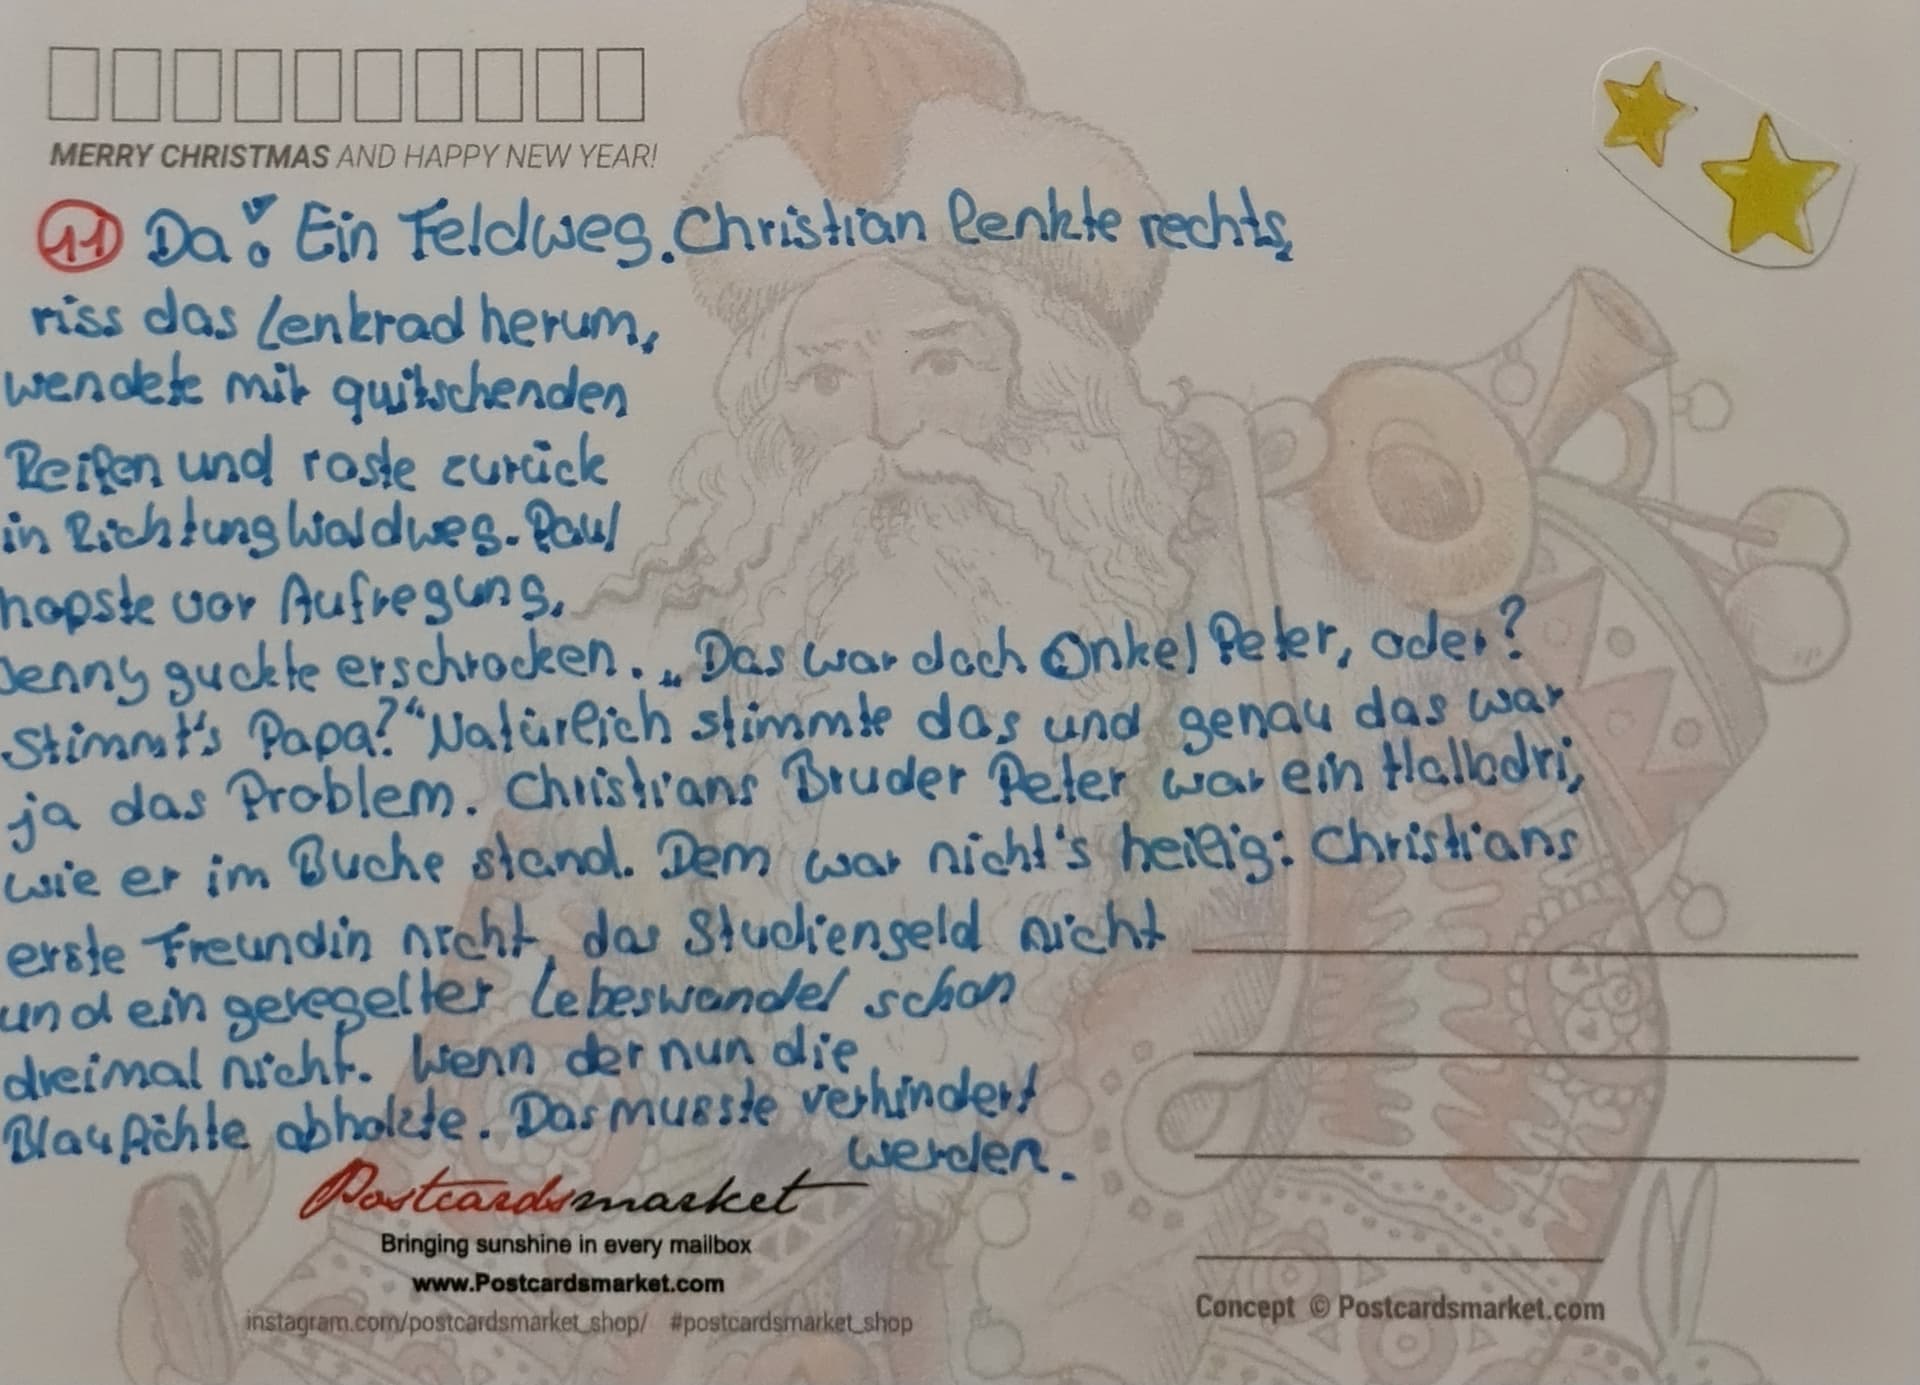 MERRY CHRISTMAS AND HAPPY NEW YEAR!
11 Da! Ein Feldweg. Christian lenkte rechts,
riss das Lenkrad herum,
wendete mit quitschenden
Reifen und raste zurück
in Richtung Waldweg. Paul
hopste vor Aufregung.
Jenny guckte erschrocken. „Das war doch Onkel Peter, oder?
Stimmt's Papa?“ Natürlich stimmte das und genau das war
ja das Problem. Christians Bruder Peter war ein Hallodri,
wie er im Buche stand. Dem war nicht's heilig: Christians
erste Freundin nicht, das Studiengeld nicht
und ein geregelter Lebeswandel schon
dreimal nicht. Wenn der nun die
Blaufichte abholzte. Das musste verhindert
werden.
Postcardsmarket
Bringing sunshine in every mailbox
www.Postcardsmarket.com
instagram.com/postcardsmarket_shop/ #postcardsmarket_shop
Concept © Postcardsmarket.com